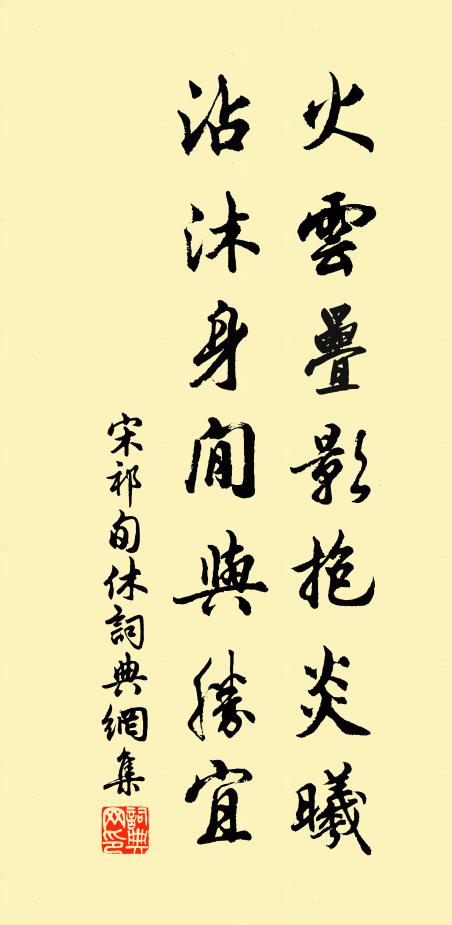 火雲疊影抱炎曦
沾沐身閒與勝宜
宋祁旬休詞典網集
詞典網印